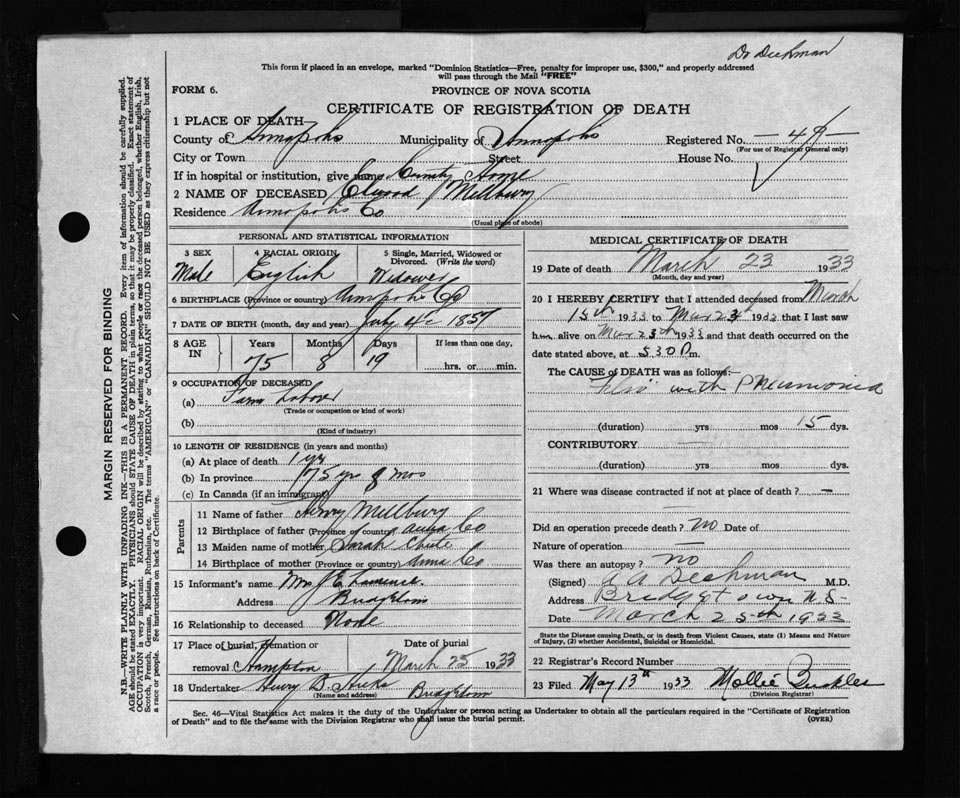 Dr Deckman
This form if placed in an envelope, marked "Dominion Statistics—Free, penalty for improper use, $300," and properly addressed
will pass through the Mail "FREE"
FORM 6.
PROVINCE OF NOVA SCOTIA
CERTIFICATE OF REGISTRATION OF DEATH
1 PLACE OF DEATH
County of Annapolis Municipality of Annapolis Registered No. — 49 —
(For use of Registrar General only)
City or Town Street House No.
If in hospital or institution, give name County Home
2 NAME OF DECEASED Elwood Millbury
Residence Annapolis Co
(Usual place of abode)
PERSONAL AND STATISTICAL INFORMATION
3 SEX 4 RACIAL ORIGIN 5 Single, Married, Widowed or Divorced. (Write the word)
Male English Widower
6 BIRTHPLACE (Province or country) Annapolis Co
7 DATE OF BIRTH (month, day and year) July 4th 1857
8 AGE IN Years Months Days If less than one day,
75 8 19 hrs. or min.
9 OCCUPATION OF DECEASED
(a) Farm Laborer
(Trade or occupation or kind of work)
(b)
(Kind of industry)
10 LENGTH OF RESIDENCE (in years and months)
(a) At place of death 1 yr
(b) In province 75 yr 8 mos
(c) In Canada (if an immigrant)
Parents
11 Name of father Henry Millbury
12 Birthplace of father (Province or country) Anna Co
13 Maiden name of mother Sarah Chute
14 Birthplace of mother (Province or country) Anna Co
15 Informant's name Mrs J E Lawrence
Address Bridgetown
16 Relationship to deceased None
17 Place of burial, cremation or removal Hampton Date of burial March 25 1933
18 Undertaker Henry B. Hicks Bridgetown
(Name and address)
MEDICAL CERTIFICATE OF DEATH
19 Date of death March 23 1933
(Month, day and year)
20 I HEREBY CERTIFY that I attended deceased from March
15th 1933 to Mar 23th 1933 that I last saw
him alive on Mar 23th 1933 and that death occurred on the
date stated above, at 5 30 P m.
The CAUSE of DEATH was as follows:—
Flu with Pneumonia
(duration) yrs mos 15 dys.
CONTRIBUTORY —
(duration) yrs. mos. dys.
21 Where was disease contracted if not at place of death? —
—
Did an operation precede death? no Date of
Nature of operation —
Was there an autopsy? no
(Signed) A A Deckman M.D.
Address Bridgetown N.S.
Date March 25th 1933
State the Disease causing Death, or in death from Violent Causes, state (1) Means and Nature
of Injury, (2) whether Accidental, Suicidal or Homicidal.
22 Registrar's Record Number
23 Filed May 13th 1933 Mollie
(Division Registrar)
Sec. 46—Vital Statistics Act makes it the duty of the Undertaker or person acting as Undertaker to obtain all the particulars required in the "Certificate of Registration
of Death" and to file the same with the Division Registrar who shall issue the burial permit.
(OVER)
MARGIN RESERVED FOR BINDING
N.B.—WRITE PLAINLY WITH UNFADING INK—THIS IS A PERMANENT RECORD. Every item of information should be carefully supplied.
AGE should be stated EXACTLY. PHYSICIANS should STATE CAUSE OF DEATH in plain terms, so that it may be properly classified. Exact statement of
OCCUPATION is very important. RACIAL ORIGIN will be described by stating to what people or race the deceased person belonged, whether English, Irish,
Scotch, French, German, Russian, Ruthenian, etc. The terms "AMERICAN" or "CANADIAN" SHOULD NOT BE USED as they express citizenship but not
a race or people. See instructions on back of Certificate.